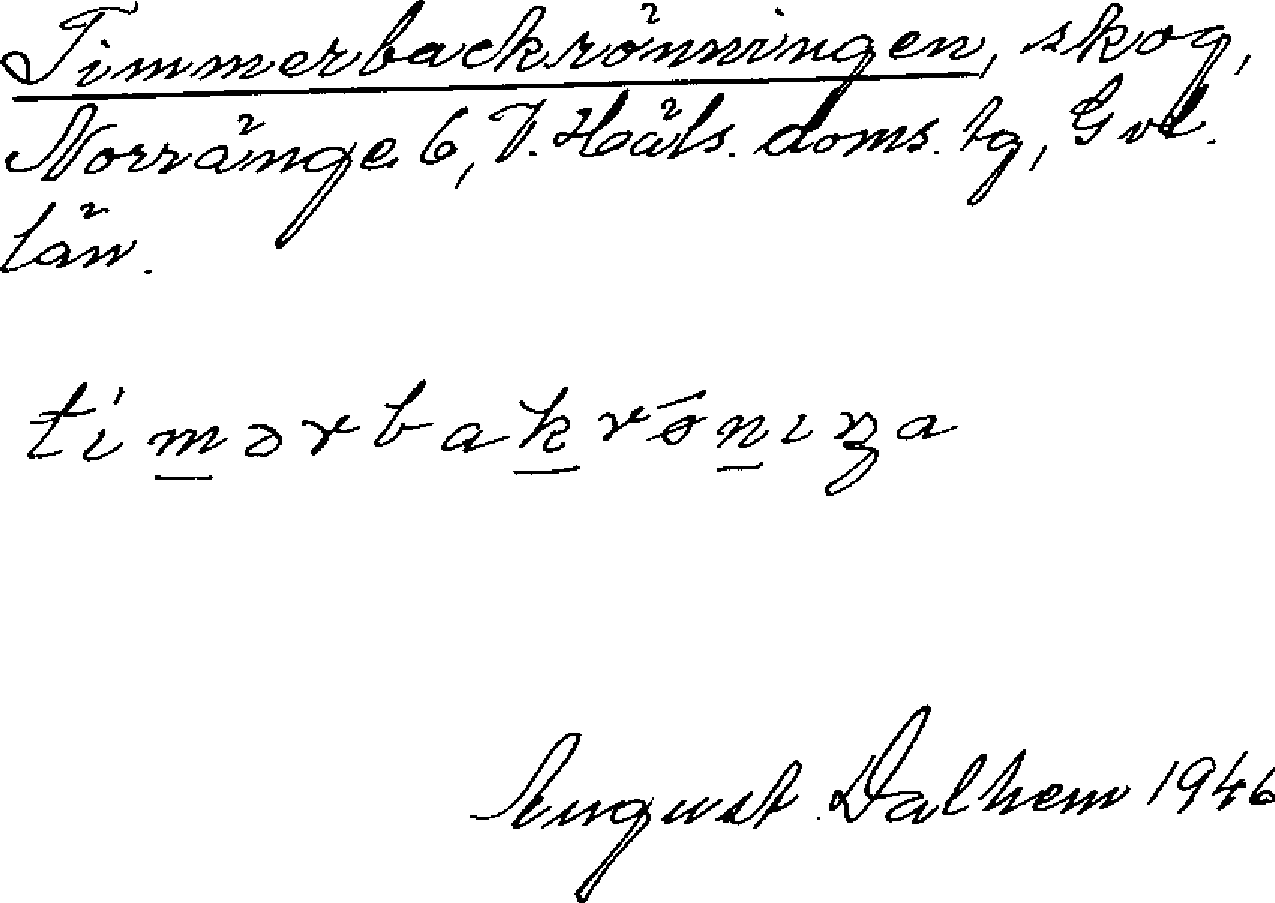 Timmerbackrönningen, skog,
Norränge 6, V. Häls. doms. tg, Gvl.
län.
timərbakrönıŋa
August Dalhem 1946